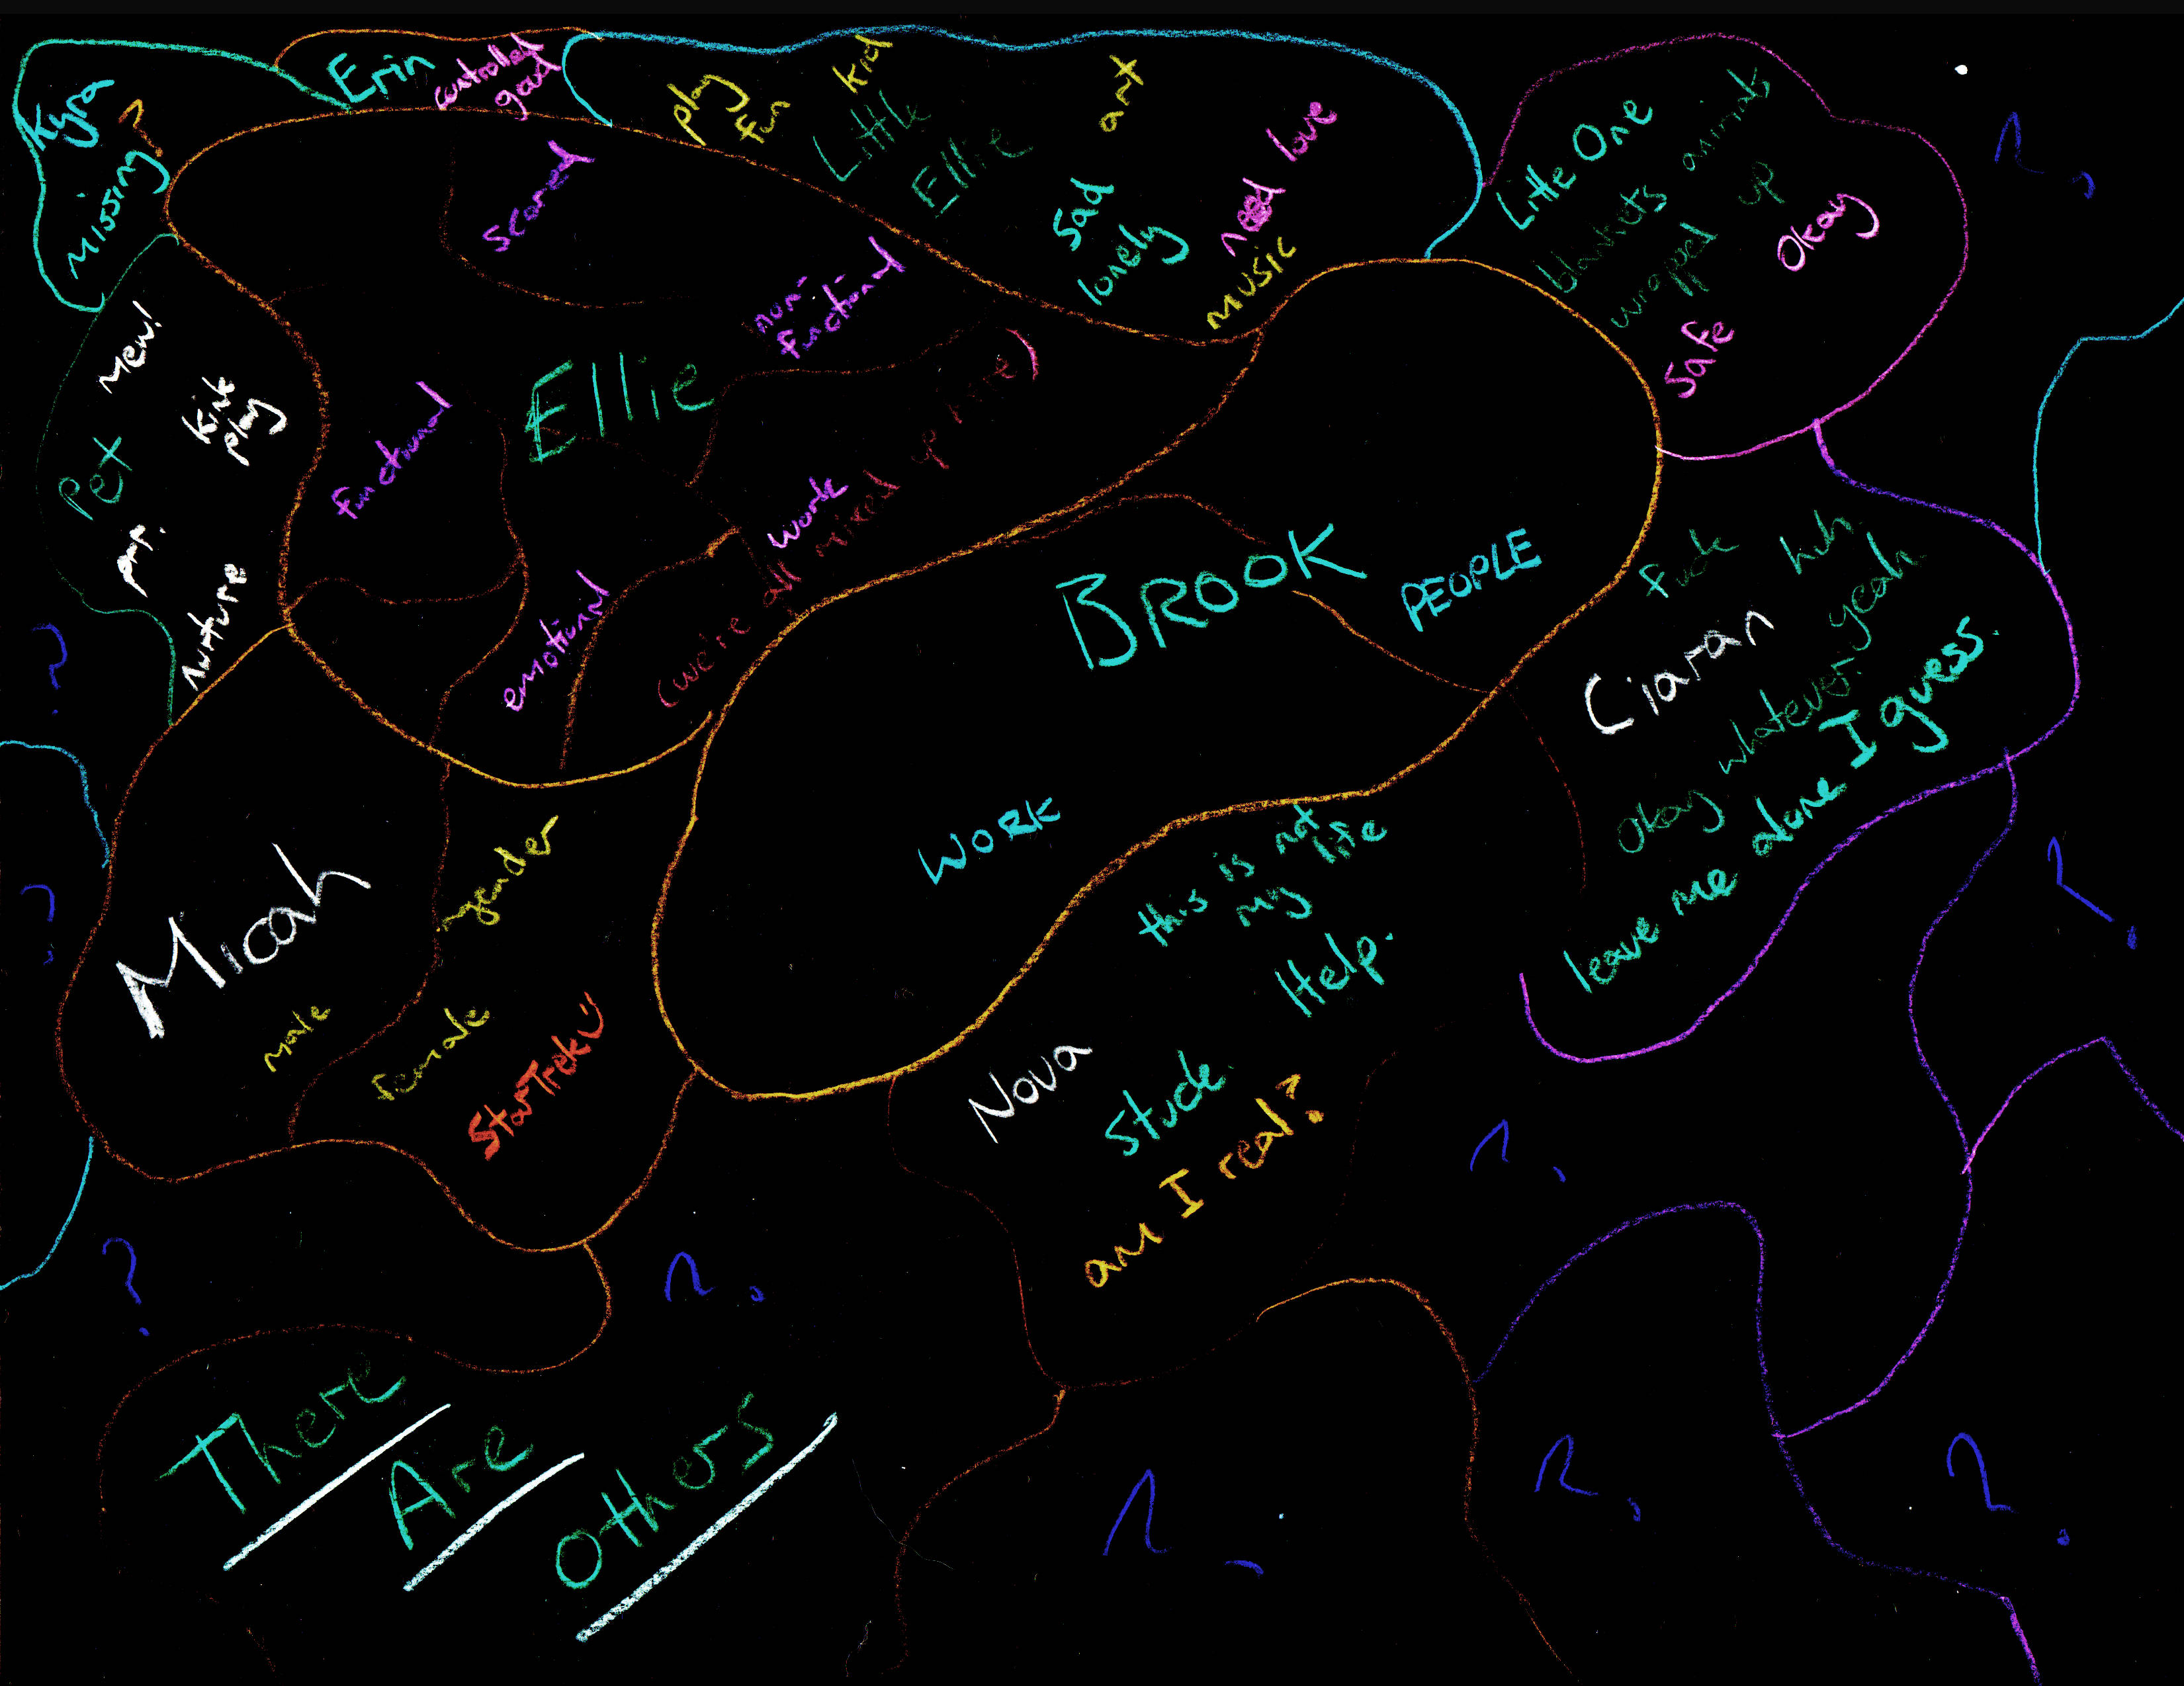 Kyra
?
missing
Erin
controlled
good
play
fun
kid
Little
Ellie
art
sad
lonely
need love
music
Little One
blankets animals
wrapped up
Okay
Safe
?
Mew!
Kink
play
Pet
nurture
scared
non-
functional
functional
Ellie
work
emotional
(we're all mixed up here)
BROOK
PEOPLE
WORK
Fuck
huh.
Ciaran
Okay whatever. yeah.
leave me alone I guess.
?
?
Micah
male
gender
female
Star Trek :)
this is not
my life
Help.
Nova
Stuck.
am I real?
?
?
?
?
?
?
?
There
Are
Others